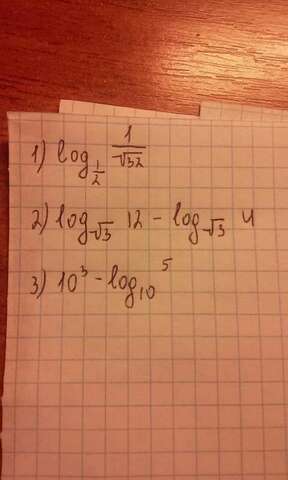 1) log_{1/2} 1/√32
2) log_{√3} 12 - log_{√3} 4
3) 10^3 - log_{10} 5